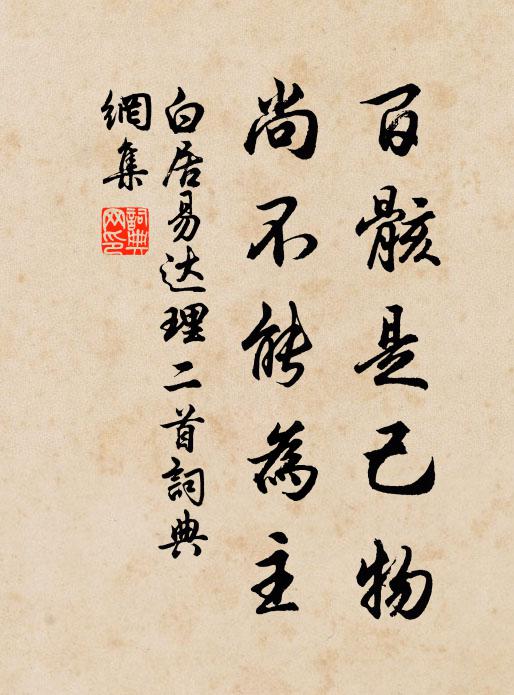 百骸是己物
尚不能為主
白居易达理二首詞典
網集
詞典
网印